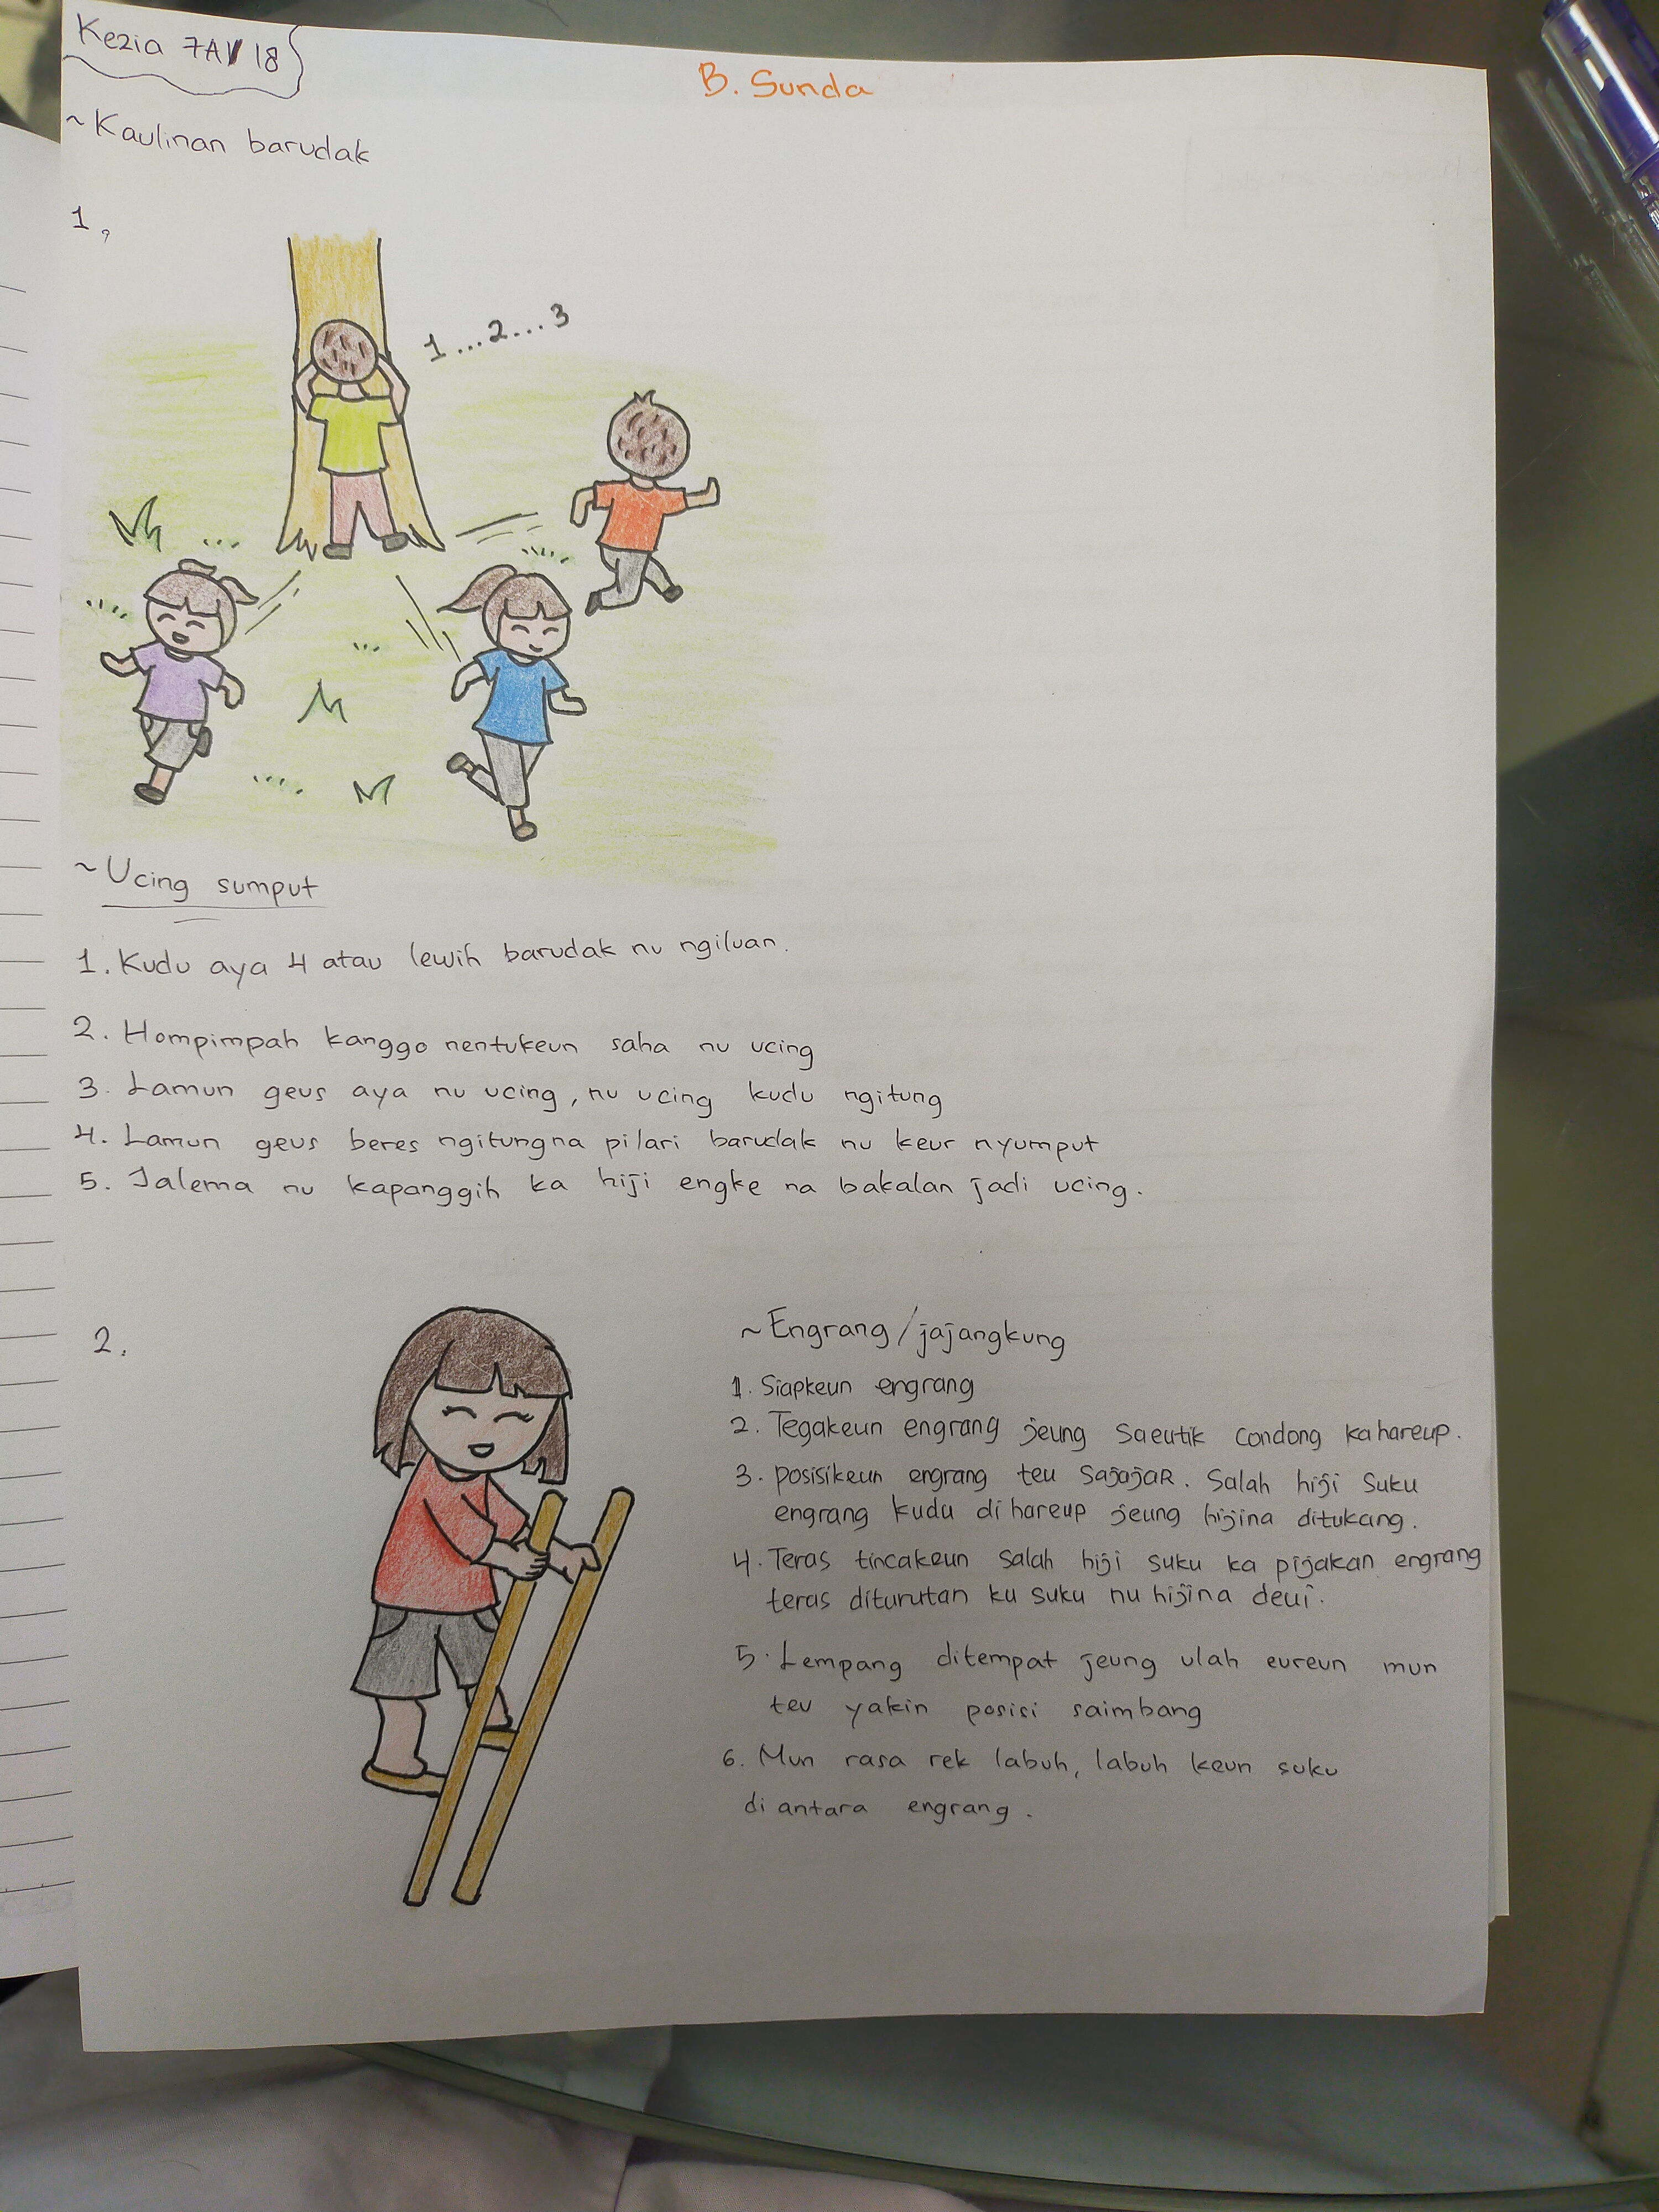 Kezia 7A/18
B. Sunda
~Kaulinan barudak
1.
1...2...3
~Ucing sumput
1. Kudu aya 4 atau lewih barudak nu ngiluan.
2. Hompimpah kanggo nentukeun saha nu ucing
3. Lamun geus aya nu ucing, nu ucing kudu ngitung
4. Lamun geus beres ngitungna pilari barudak nu keur nyumput
5. Jalema nu kapanggih ka hiji engke na bakalan jadi ucing.
2.
~Engrang/jajangkung
1. Siapkeun engrang
2. Tegakeun engrang jeung Saeutik Condong kahareup.
3. posisikeun engrang teu SajajaR. Salah hiji Suku
engrang kudu di hareup jeung hijina ditukang.
4. Teras tincakeun Salah hiji suku ka pijakan engrang
teras diturutan ku suku nu hijina deui.
5. Lempang ditempat jeung ulah eureun mun
teu yakin posisi saimbang
6. Mun rasa rek labuh, labuh keun suku
di antara engrang.